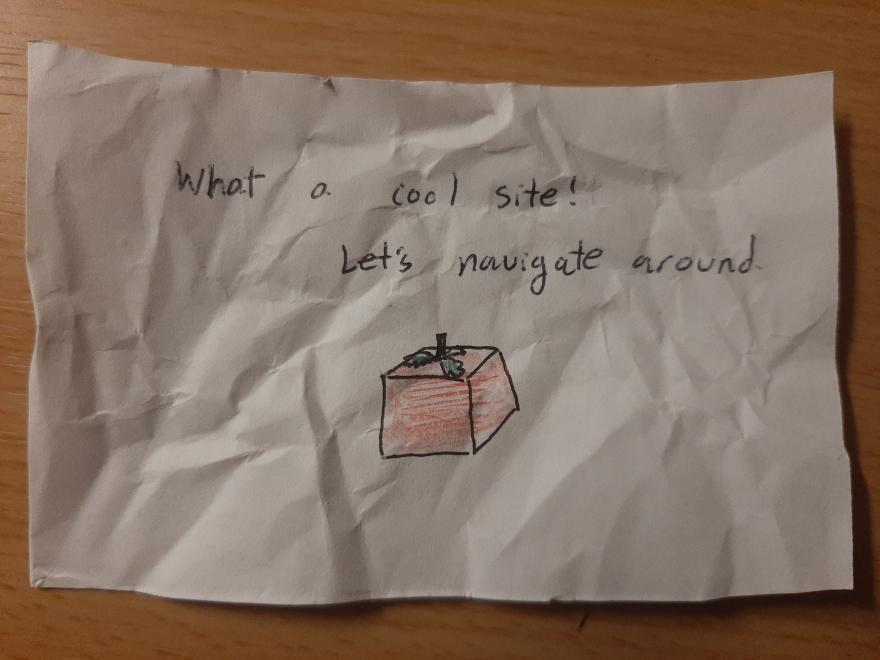 What a cool site!
Let's navigate around.